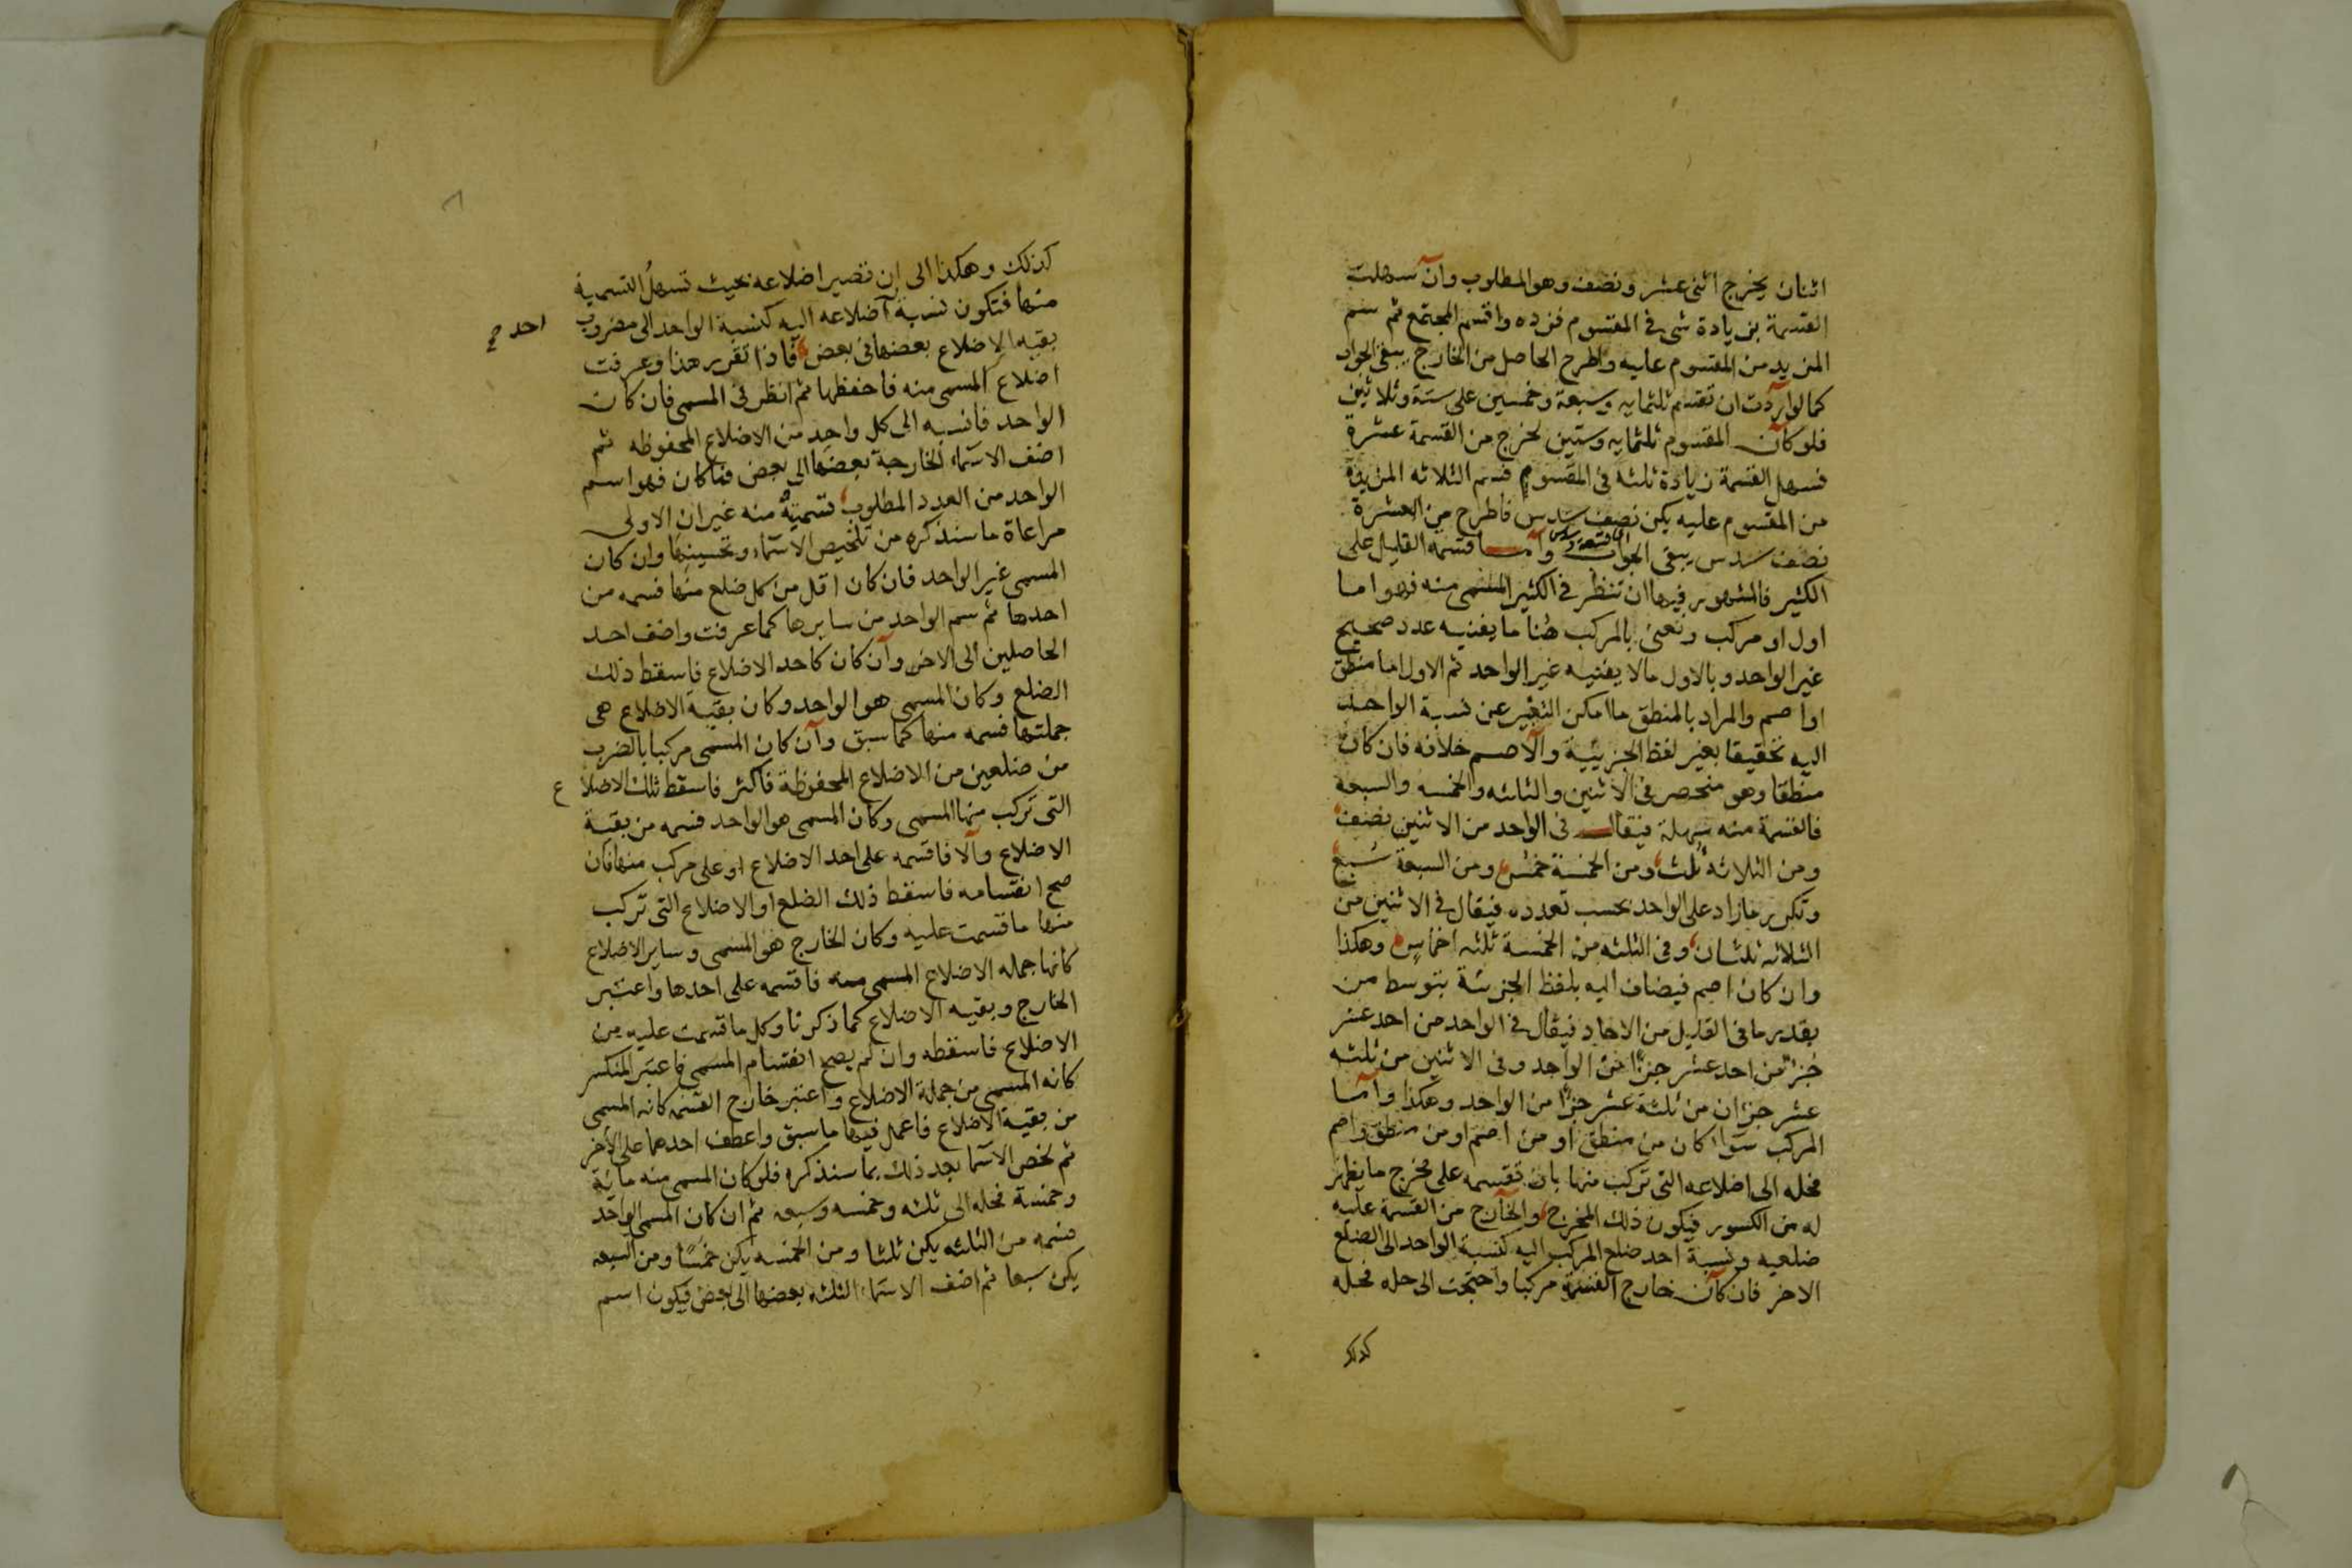 اثنان يخرج اثنى عشر ونصف وهو المطلوب وان سهلت
القسمة بزيادة شى فى المقسوم فزده واقسم المجتمع ثم سم
المزيد من المقسوم عليه واطرح الحاصل من الخارج يبقى الجواب
كما لو اردت ان تقسم ثلثمايه وسبعة وخمسين على ستة وثلاثين
فلو كان المقسوم ثلثمايه وستين لخرج من القسمة عشرة
فسهل القسمة زيادة ثلثه فى المقسوم فسم الثلاثه المزيدة
من المقسوم عليه يكن نصف سدس فاطرح من العشرة
نصف سدس يبقى الجواب واما قسمه القليل على
الكثير فالمشهور فيها ان تنظر فى الكثير المسمى منه فهو اما
اول او مركب ونعنى بالمركب هنا ما يفنيه عدد صحيح
غير الواحد وبالاول ما لا يفنيه غير الواحد ثم الاول اما منطق
او اصم والمراد بالمنطق ما امكن التعبير عن نسبة الواحد
اليه تحقيقا بغير لفظ الجزييية والاصم خلافه فان كان
منطقا وهو منحصر فى الاثنين والثلثه والخمسه والسبعه
فالقسمة منه سهلة فيقال فى الواحد من الاثنين نصف
ومن الثلاثه ثلث ومن الخمسة خمس ومن السبعة سبع
وتكرير ما زاد على الواحد بحسب تعدده فيقال فى الاثنين من
الثلاثه ثلثان وفى الثلثه من الخمسة ثلثه اخماس وهكذا
وان كان اصم فيضاف اليه بلفظ الجزئة بتوسط من
بقدير ما فى القليل من الاحاد فيقال فى الواحد من احد عشر
جزء من احد عشر جزءا من الواحد وفى الاثنين من ثلثه
عشر جزءان من ثلثة عشر جزءا من الواحد وهكذا واما
المركب سواء كان من منطق او من اصم او من منطق واصم
فحله الى اضلاعه التى تركب منها بان تقسمه على مخرج ما يظهر
له من الكسور فيكون ذلك المخرج والخارج من القسمة عليه
ضلعيه ونسبة احد ضلع المركب اليه كنسبة الواحد الى الضلع
الاخر فان كان خارج القسمة مركبا واحتجت الى حله فحله
كذلك
كذلك وهكذا الى ان تصير اضلاعه بحيث تسهل التسمية
منها فتكون نسبة اضلاعه اليه كنسبة الواحد الى مضروب
احد صح
بقيه الاضلاع بعضها فى بعض فاذا تقرر هذا وعرفت
اضلاع المسمى منه فاحفظها ثم انظر فى المسمى فان كان
الواحد فانسبه الى كل واحد من الاضلاع المحفوظه ثم
اضف الاسماء الخارجة بعضها الى بعض فما كان فهو اسم
الواحد من العدد المطلوب تسميته منه غير ان الاولى
مراعاة ما سنذكره من تلخيص الاسماء وتحسينها وان كان
المسمى غير الواحد فان كان اقل من كل ضلع منها فسمه من
احدها ثم سم الواحد من سايرها كما عرفت واضف احد
الحاصلين الى الاخر وان كان كاحد الاضلاع فاسقط ذلك
الضلع وكان المسمى هو الواحد وكان بقية الاضلاع هى
جملتها فسمه منها كما سبق وان كان المسمى مركبا بالضرب
من ضلعين من الاضلاع المحفوظة فاكثر فاسقط تلك الاضلاع
التى تركب منها المسمى وكان المسمى هو الواحد فسمه من بقية
الاضلاع والا فاقسمه على احد الاضلاع او على مركب منها فان
صح انقسامه فاسقط ذلك الضلع او الاضلاع التى تركب
منها ما قسمت عليه وكان الخارج هو المسمى وساير الاضلاع
كانها جمله الاضلاع المسمى منه فاقسمه على احدها واعتبر
الخارج وبقيه الاضلاع كما ذكرنا وكل ما قسمت عليه من
الاضلاع فاسقطه وان لم يصح انقسام المسمى فاعتبر المنكسر
كانه المسمى من جملة الاضلاع واعتبر خارج القسمه كانه المسمى
من بقية الاضلاع فاعمل فيها ما سبق واعطف احدهما على الاخر
ثم لخص الاسما بعد ذلك بما سنذكره فلو كان المسمى منه ماية
وخمسة فحله الى ثلثه وخمسه وسبعه ثم ان كان المسمى الواحد
فسمه من الثلثه يكن ثلثا ومن الخمسه يكن خمسا ومن السبعه
يكن سبعا ثم اضف الاسماء الثلثه بعضها الى بعض فيكون اسم